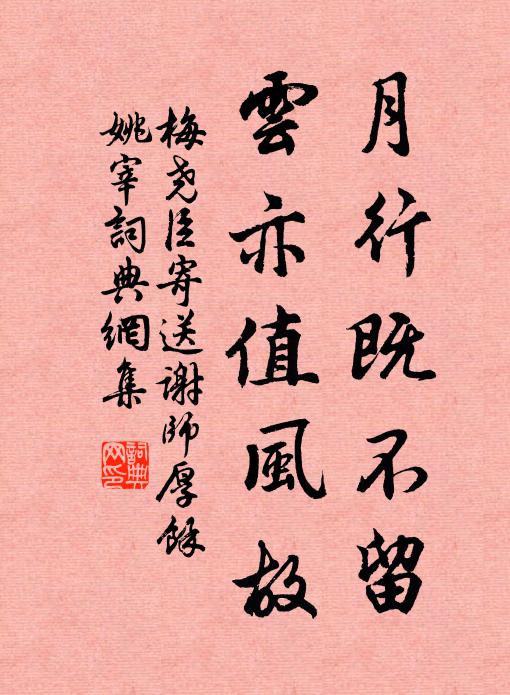 月行既不留
雲亦值風故
梅堯臣寄送謝師厚餘
姚宰詞典網集
詞典網印